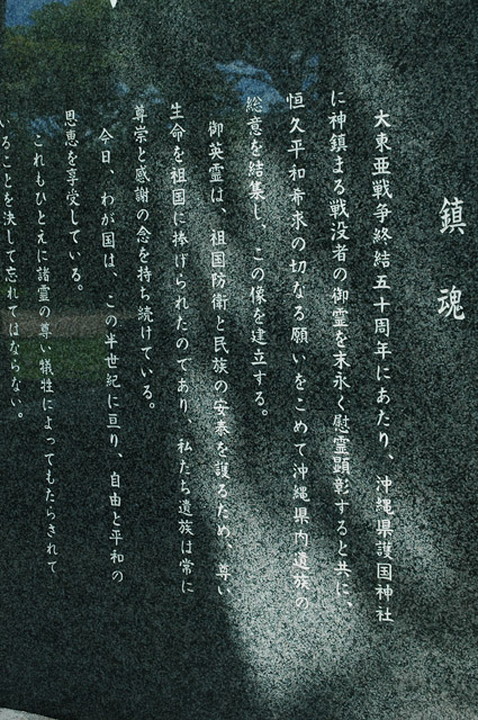 鎮魂
大東亜戦争終結五十周年にあたり、沖縄県護国神社
に神鎮まる戦没者の御霊を末永く慰霊顕彰すると共に、
恒久平和希求の切なる願いをこめて沖縄県内遺族の
総意を結集し、この像を建立する。
御英霊は、祖国防衛と民族の安泰を護るため、尊い
生命を祖国に捧げられたのであり、私たち遺族は常に
尊崇と感謝の念を持ち続けている。
今日、わが国は、この半世紀に亘り、自由と平和の
恩恵を享受している。
これもひとえに諸霊の尊い犠牲によってもたらされて
いることを決して忘れてはならない。